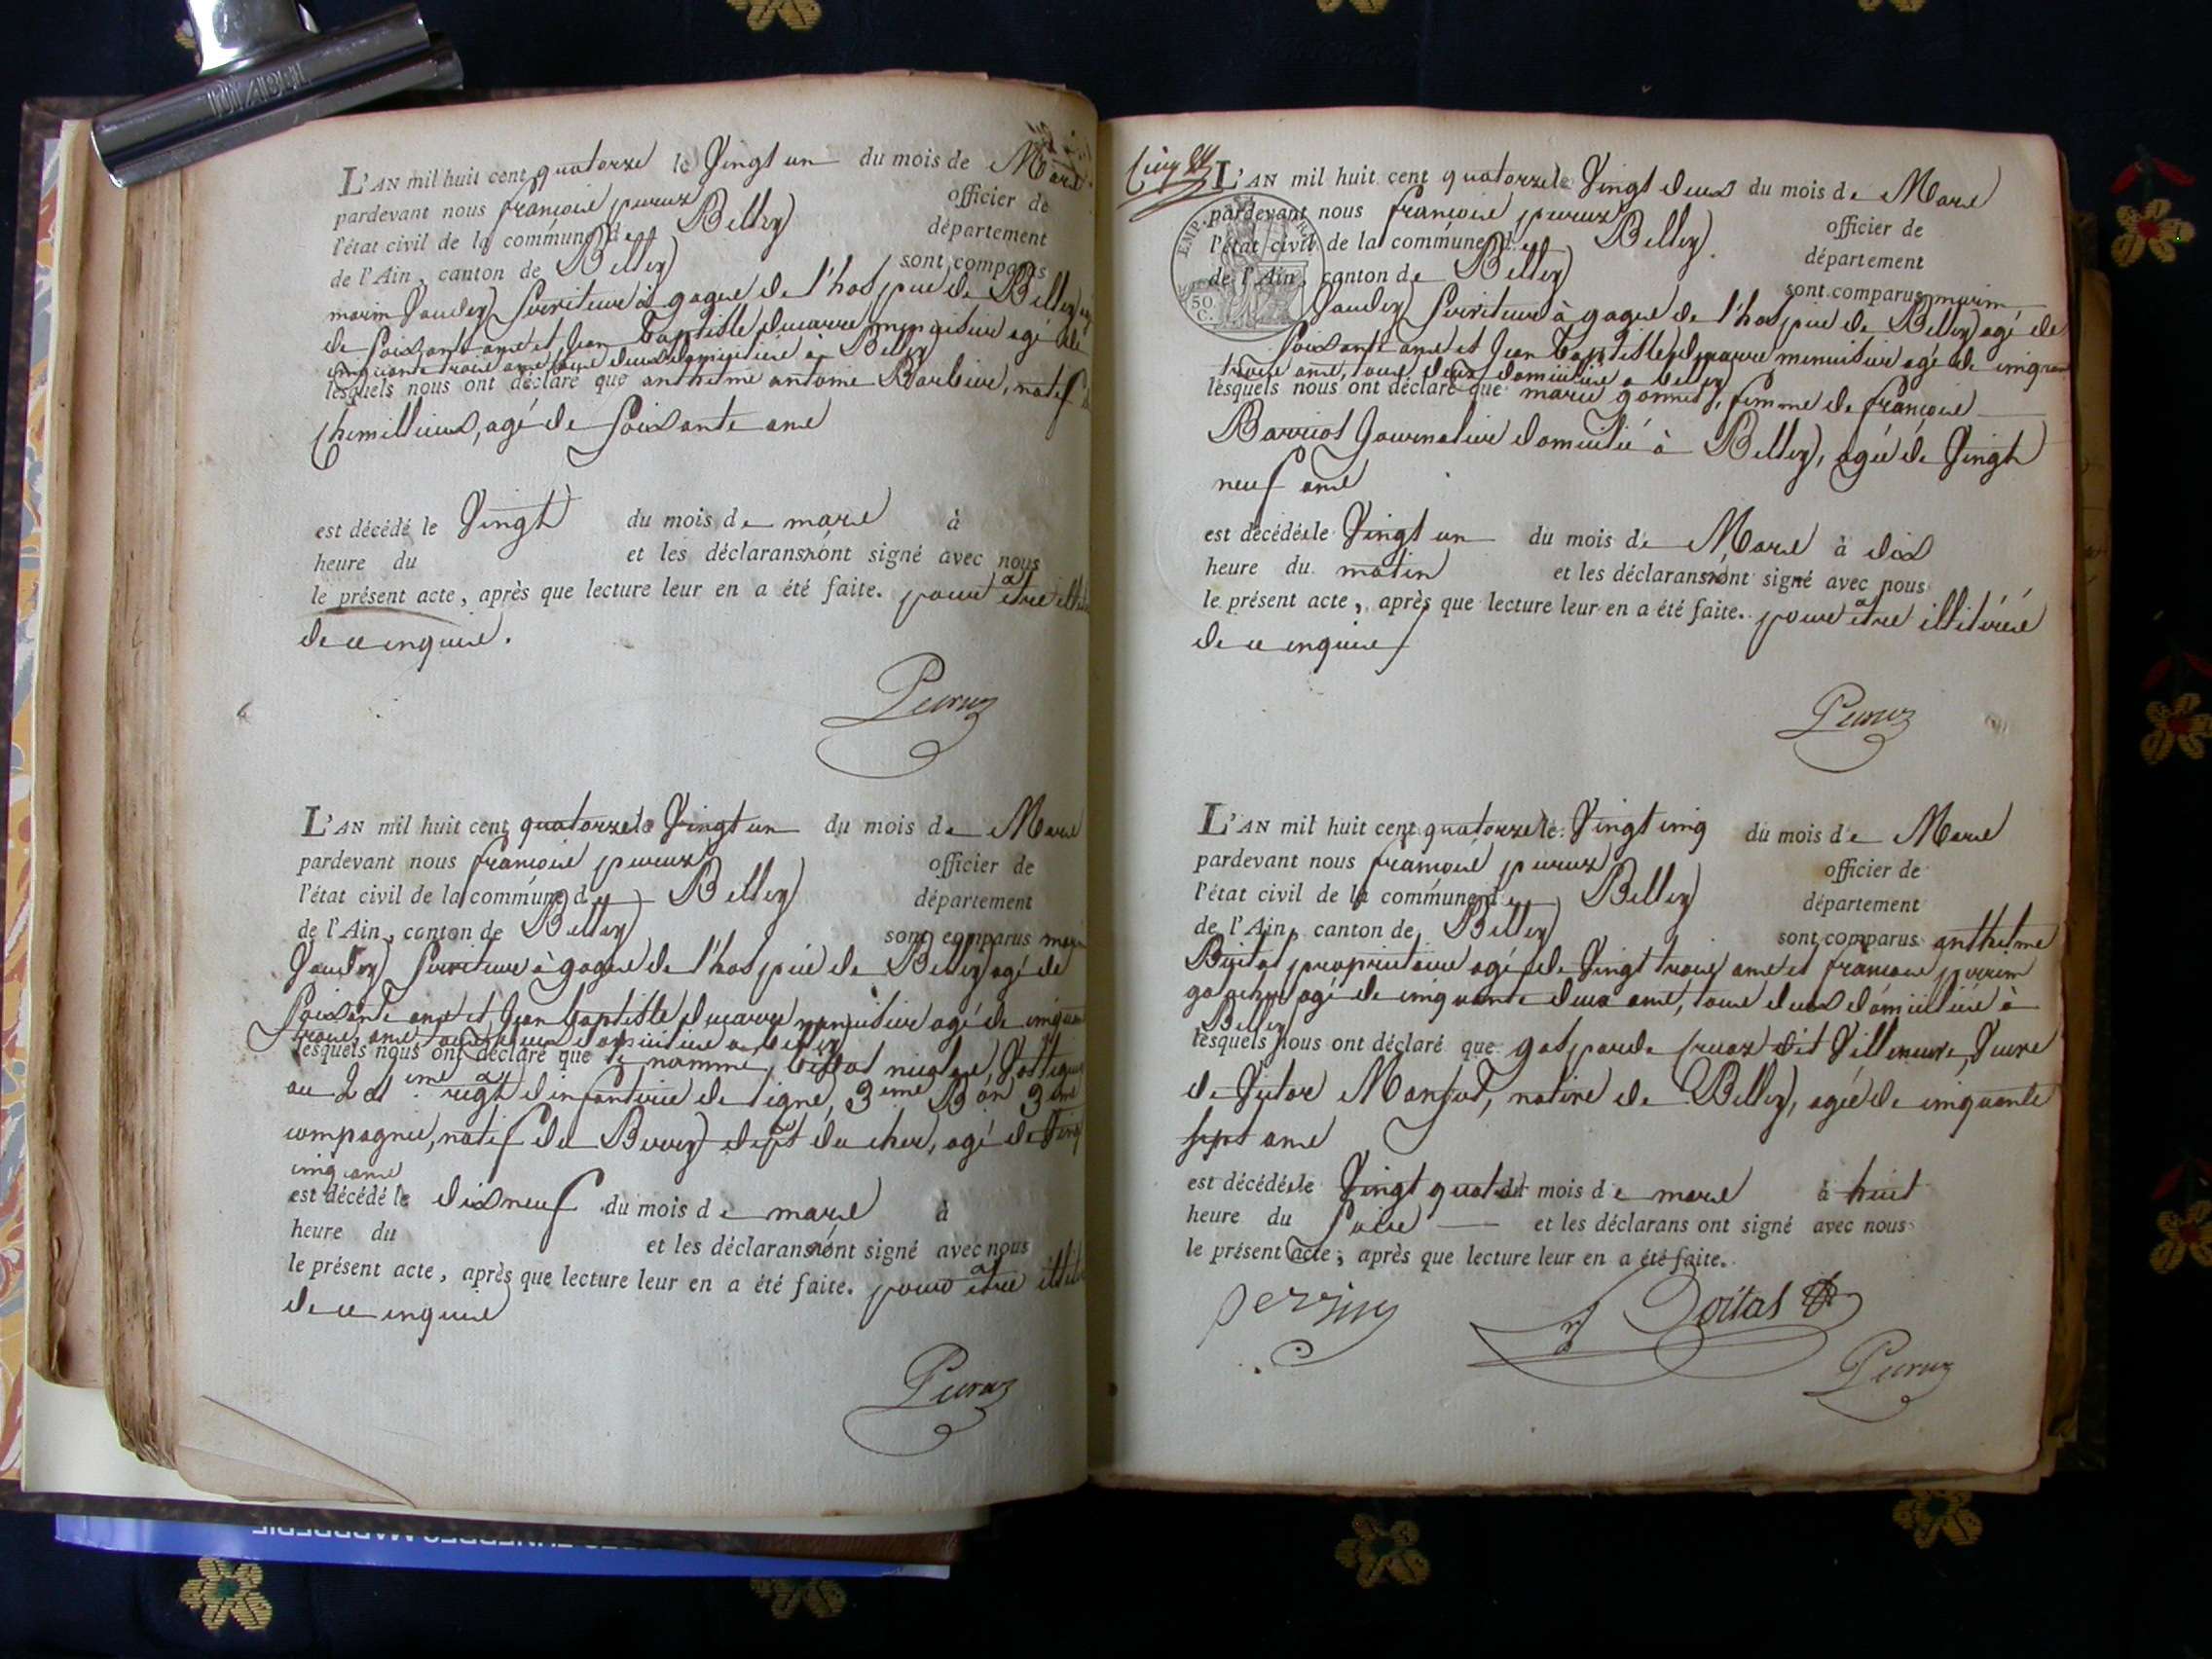 DIABEL
L'AN mil huit cent quatorze le Vingt un du mois de Mars
pardevant nous françois peruz officier de
l'état civil de la commune de Belley département
de l'Ain, canton de Belley sont comparus
marin Serviteur à gages de l'hospice de Belley
de Soixante ans et Jean baptiste ducarre menuisier agé de
cinquante trois ans tous deux domiciliés à Belley
lesquels nous ont déclaré que anthelme antoine Barbier, natif
Chemillieux, agé de Soixante ans
est décédé le Vingt du mois de mars à
heure du et les déclarans n'ont signé avec nous
le présent acte, après que lecture leur en a été faite. pour être
de ce enquis.
Peruz
L'AN mil huit cent quatorze le Vingt un du mois de Mars
pardevant nous françois peruz officier de
l'état civil de la commune de Belley département
de l'Ain, canton de Belley sont comparus
Serviteur à gages de l'hospice de Belley agé de
Soixante ans et Jean baptiste ducarre menuisier agé de
trois ans, tous deux domiciliés a belley
lesquels nous ont déclaré que le nommé nicolas,
au regt d'infanterie de ligne, 3eme Bon 3eme
compagnie, natif de Berry dept du cher, agé de
cinq ans
est décédé le dix neuf du mois de mars à
heure du et les déclarans n'ont signé avec nous
le présent acte, après que lecture leur en a été faite. pour être
de ce enquis
Peruz
L'AN mil huit cent quatorze le Vingt deux du mois de Mars
pardevant nous françois peruz officier de
l'état civil de la commune de Belley département
de l'Ain, canton de Belley sont comparus marin
EMP. 50 C.
Serviteur à gages de l'hospice de Belley agé de
Soixante ans et Jean baptiste ducarre menuisier agé de cinquante
trois ans, tous deux domiciliés a belley
lesquels nous ont déclaré que marie gonnet, femme de françois
Barriot Journalier domicilié à Belley, agée de Vingt
neuf ans
est décédée le Vingt un du mois de Mars à dix
heure du matin et les déclarans n'ont signé avec nous
le présent acte, après que lecture leur en a été faite. pour être illitérés
de ce enquis
Peruz
L'AN mil huit cent quatorze le Vingt cinq du mois de Mars
pardevant nous françois peruz officier de
l'état civil de la commune de Belley département
de l'Ain, canton de Belley sont comparus anthelme
propriétaire agé de Vingt trois ans et françois perrin
agé de cinquante deux ans, tous deux domiciliés à
Belley
lesquels nous ont déclaré que gasparde Cruaz dit Villeneuve, Veuve
de Victor natire de Belley, agée de cinquante
sept ans
est décédée le Vingt quatre du mois de mars à huit
heure du Soir et les déclarans ont signé avec nous
le présent acte, après que lecture leur en a été faite.
perrin
Peruz